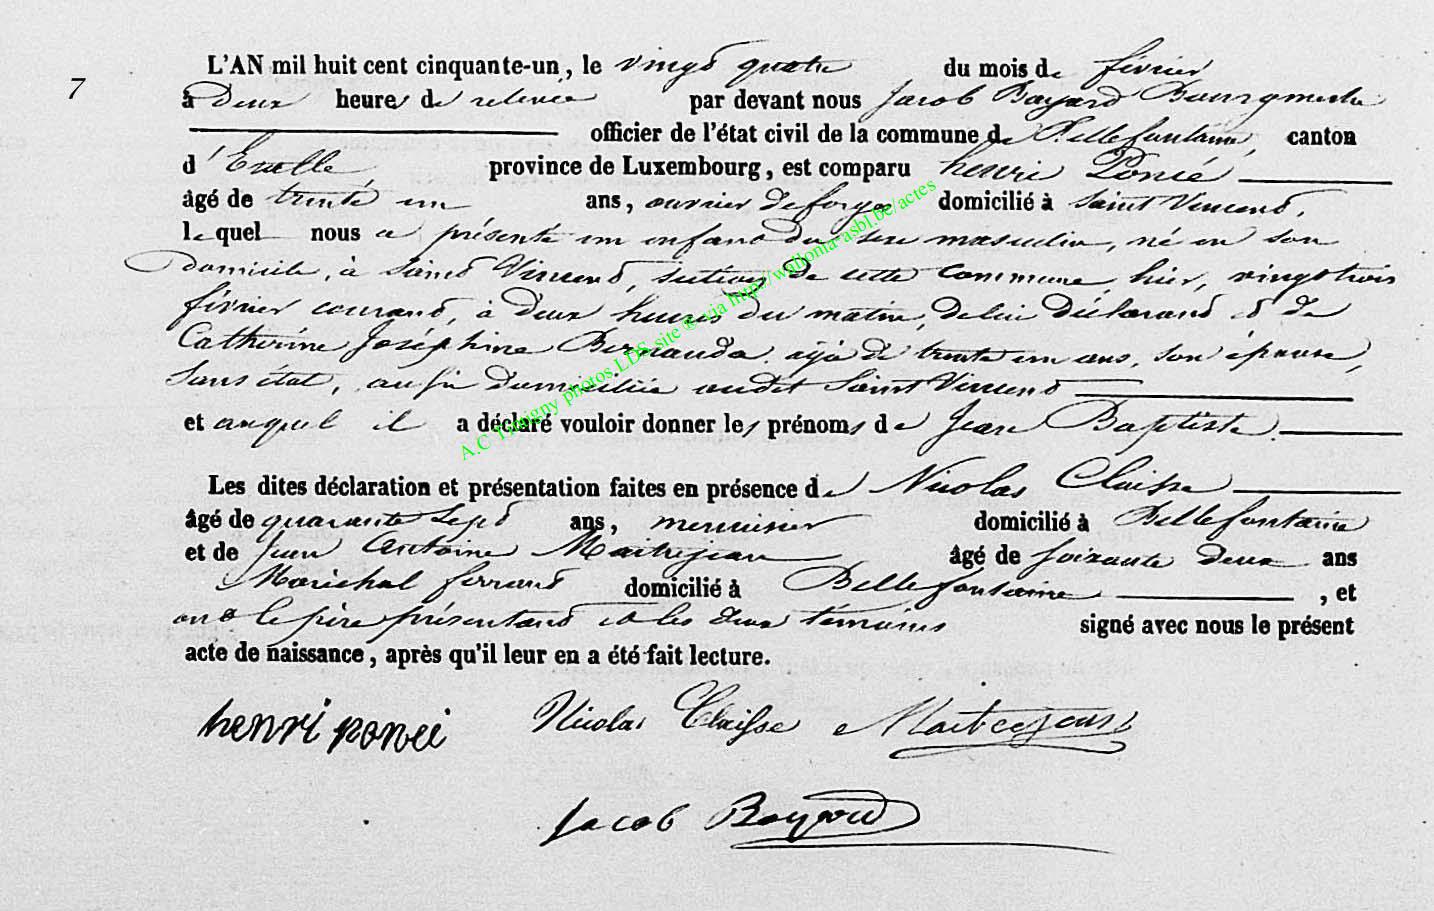 7
L'AN mil huit cent cinquante-un, le vingt quatre du mois de février
à deux heures de relevée par devant nous Jacob Bayard Bourgmestre
officier de l'état civil de la commune de Bellefontaine, canton
d'Etalle, province de Luxembourg, est comparu henri Poncé
âgé de trente un ans, ouvrier de forge domicilié à Saint Vincent,
lequel nous a présenté un enfant du sexe masculin, né en son
domicile, à Saint Vincent, section de cette commune, hier, vingt trois
février courant, à deux heures du matin, de lui déclarant et de
Catherine Joséphine agée de trente un ans, son épouse,
sans état, aussi domiciliée audit Saint Vincent
et auquel il a déclaré vouloir donner les prénoms de Jean Baptiste.
Les dites déclaration et présentation faites en présence de Nicolas Claisse
âgé de quarante sept ans, menuisier domicilié à Bellefontaine
et de Jean Antoine Maitrejean âgé de soixante deux ans
Maréchal ferrant domicilié à Bellefontaine, et
ont le père présentant et les deux témoins signé avec nous le présent
acte de naissance, après qu'il leur en a été fait lecture.
henri poncé Nicolas Claisse Maitrejean
Jacob Bayard
A.C Tintigny photos LDS, site © via http://walloma-asbl.be/actes